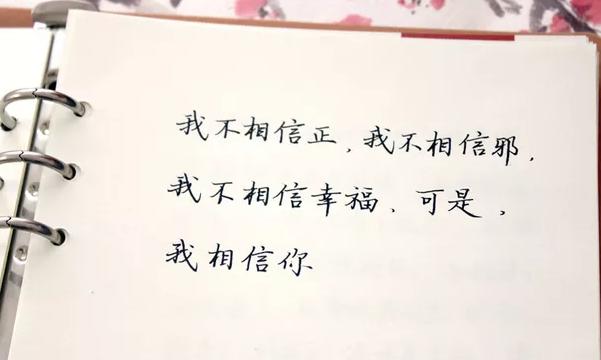 我不相信正，我不相信邪，
我不相信幸福、可是，
我相信你